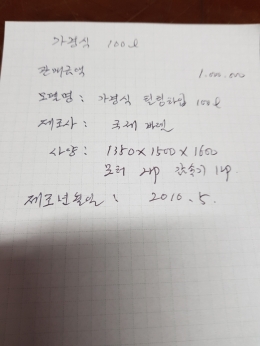 가경식 100ℓ
판매금액 1.000.000
모델명 : 가경식 틸팅타입 100ℓ
제조사 : 국제
사양 : 1350×1500×1600
모터 2Hp 감속기 1Hp.
제조년월일 : 2010. 5.